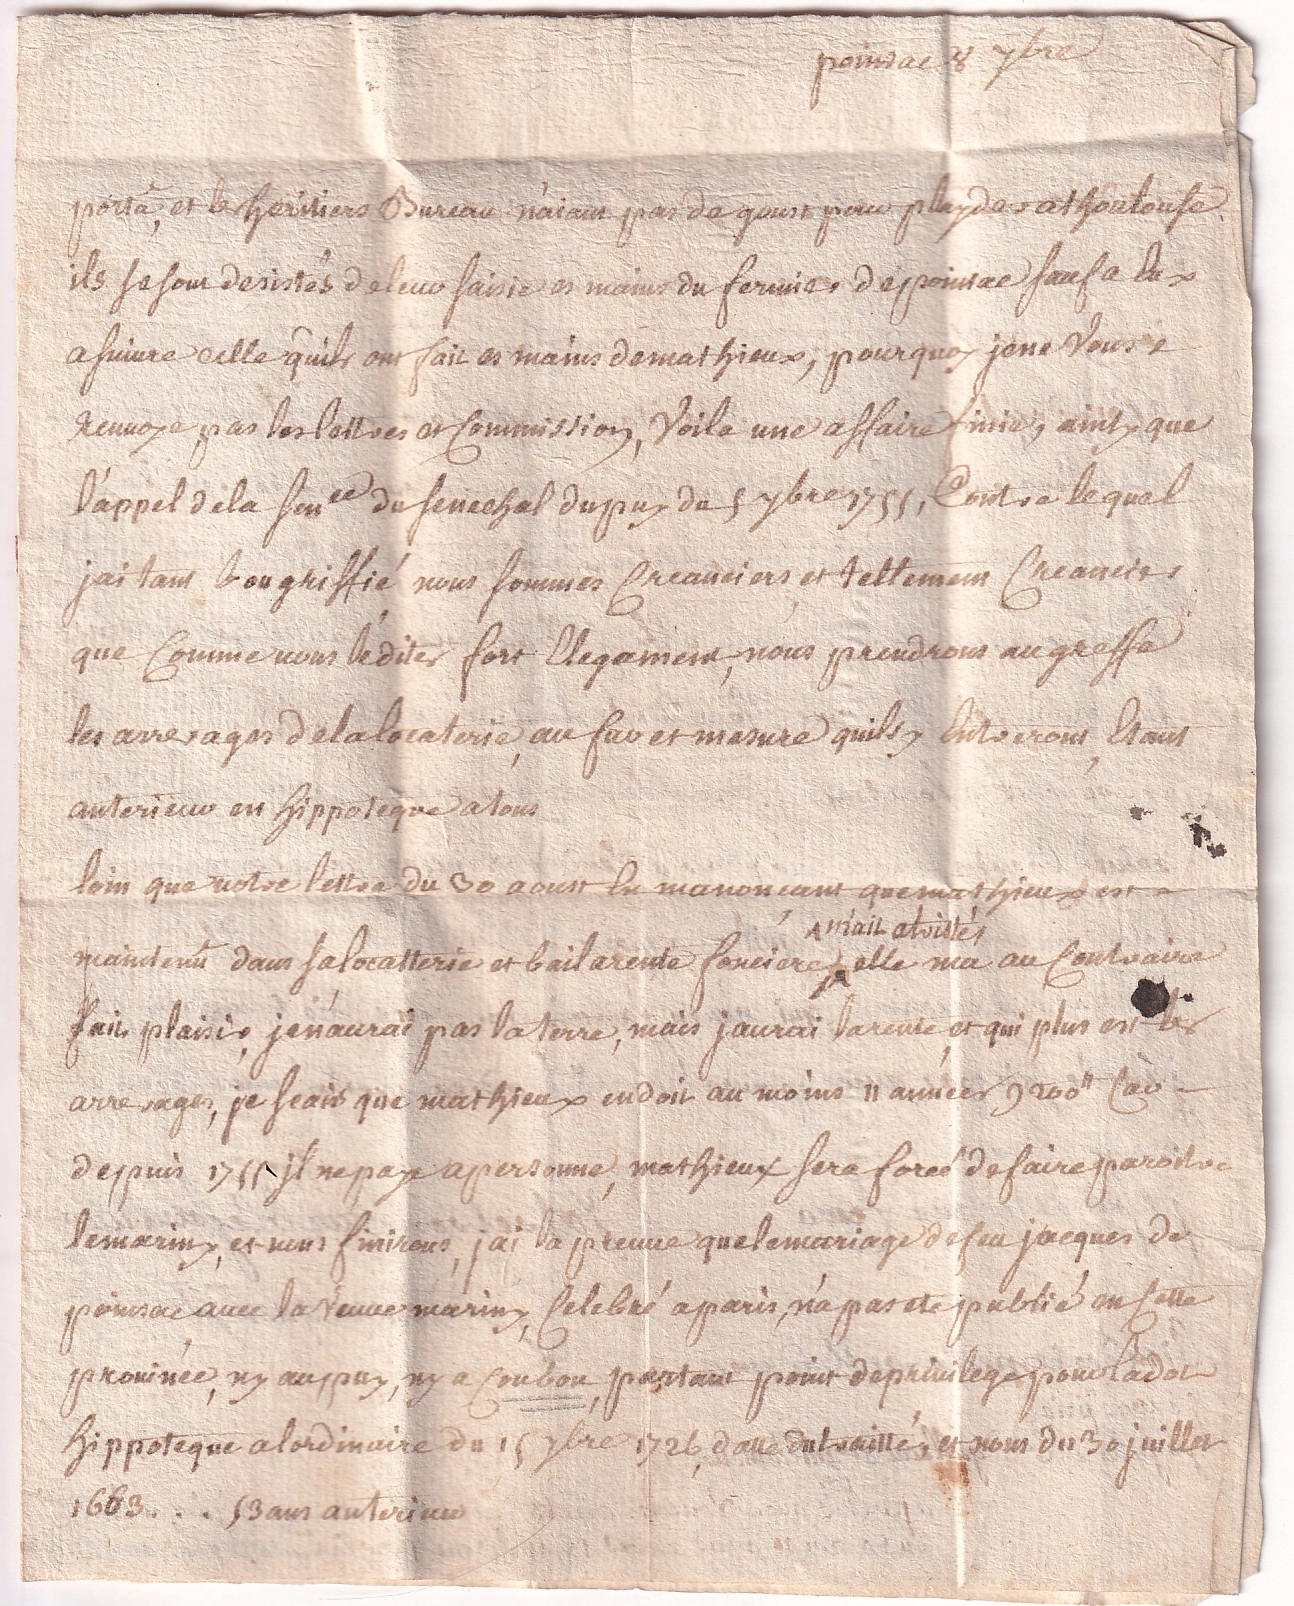 poinsac 8 7bre
porta, et les heritiers Bureau n'aiant pas de goust pour playder a thoulouse
ils se sont desistés de leur saisie es mains du fermier de poinsac sauf a eux
a suivre celle quils ont fait es mains de mathieux, pourquoy je ne vous
renvoye pas les lettres et Commission, voila une affaire finie, ainsy que
l'appel de la sence du senechal du puy du 5 7bre 1755, Contre lequel
jai tant bougriffié nous sommes Creanciers, et tellement Creanciers
que Comme vous le dites fort Elegament, nous prendrons au greffe
les arrerages de la locaterie, au fur et mesure quils y Entreront, Etant
anterieur en hippoteque a tous
loin que votre lettre du 30 aoust En manonçant que mathieux est
maintenu dans sa locatterie et bail a rente fonciere, elle ma au Contraire
m'ait atristé,
fait plaisir, je n'aurai pas la terre, mais jaurai la rente, et qui plus est les
arrerages, je scais que mathieux en doit au moins 11 années 9 200ll Car
depuis 1755 jl ne paye a personne, mathieux sera forcé de faire paroitre
le mariny, et nous finirons, jai la preuve que le mariage de feu jacques de
poinsac avec la veuve mariny, Celebré a paris, n'a pas ete publié en Cette
province, ny au puy, ny a Coubon, partant point de privilege pour la dot
hippoteque a lordinaire du 15 7bre 1726, datte du traitté, et nous du 30 juillet
1663 . . . 53 ans anterieur